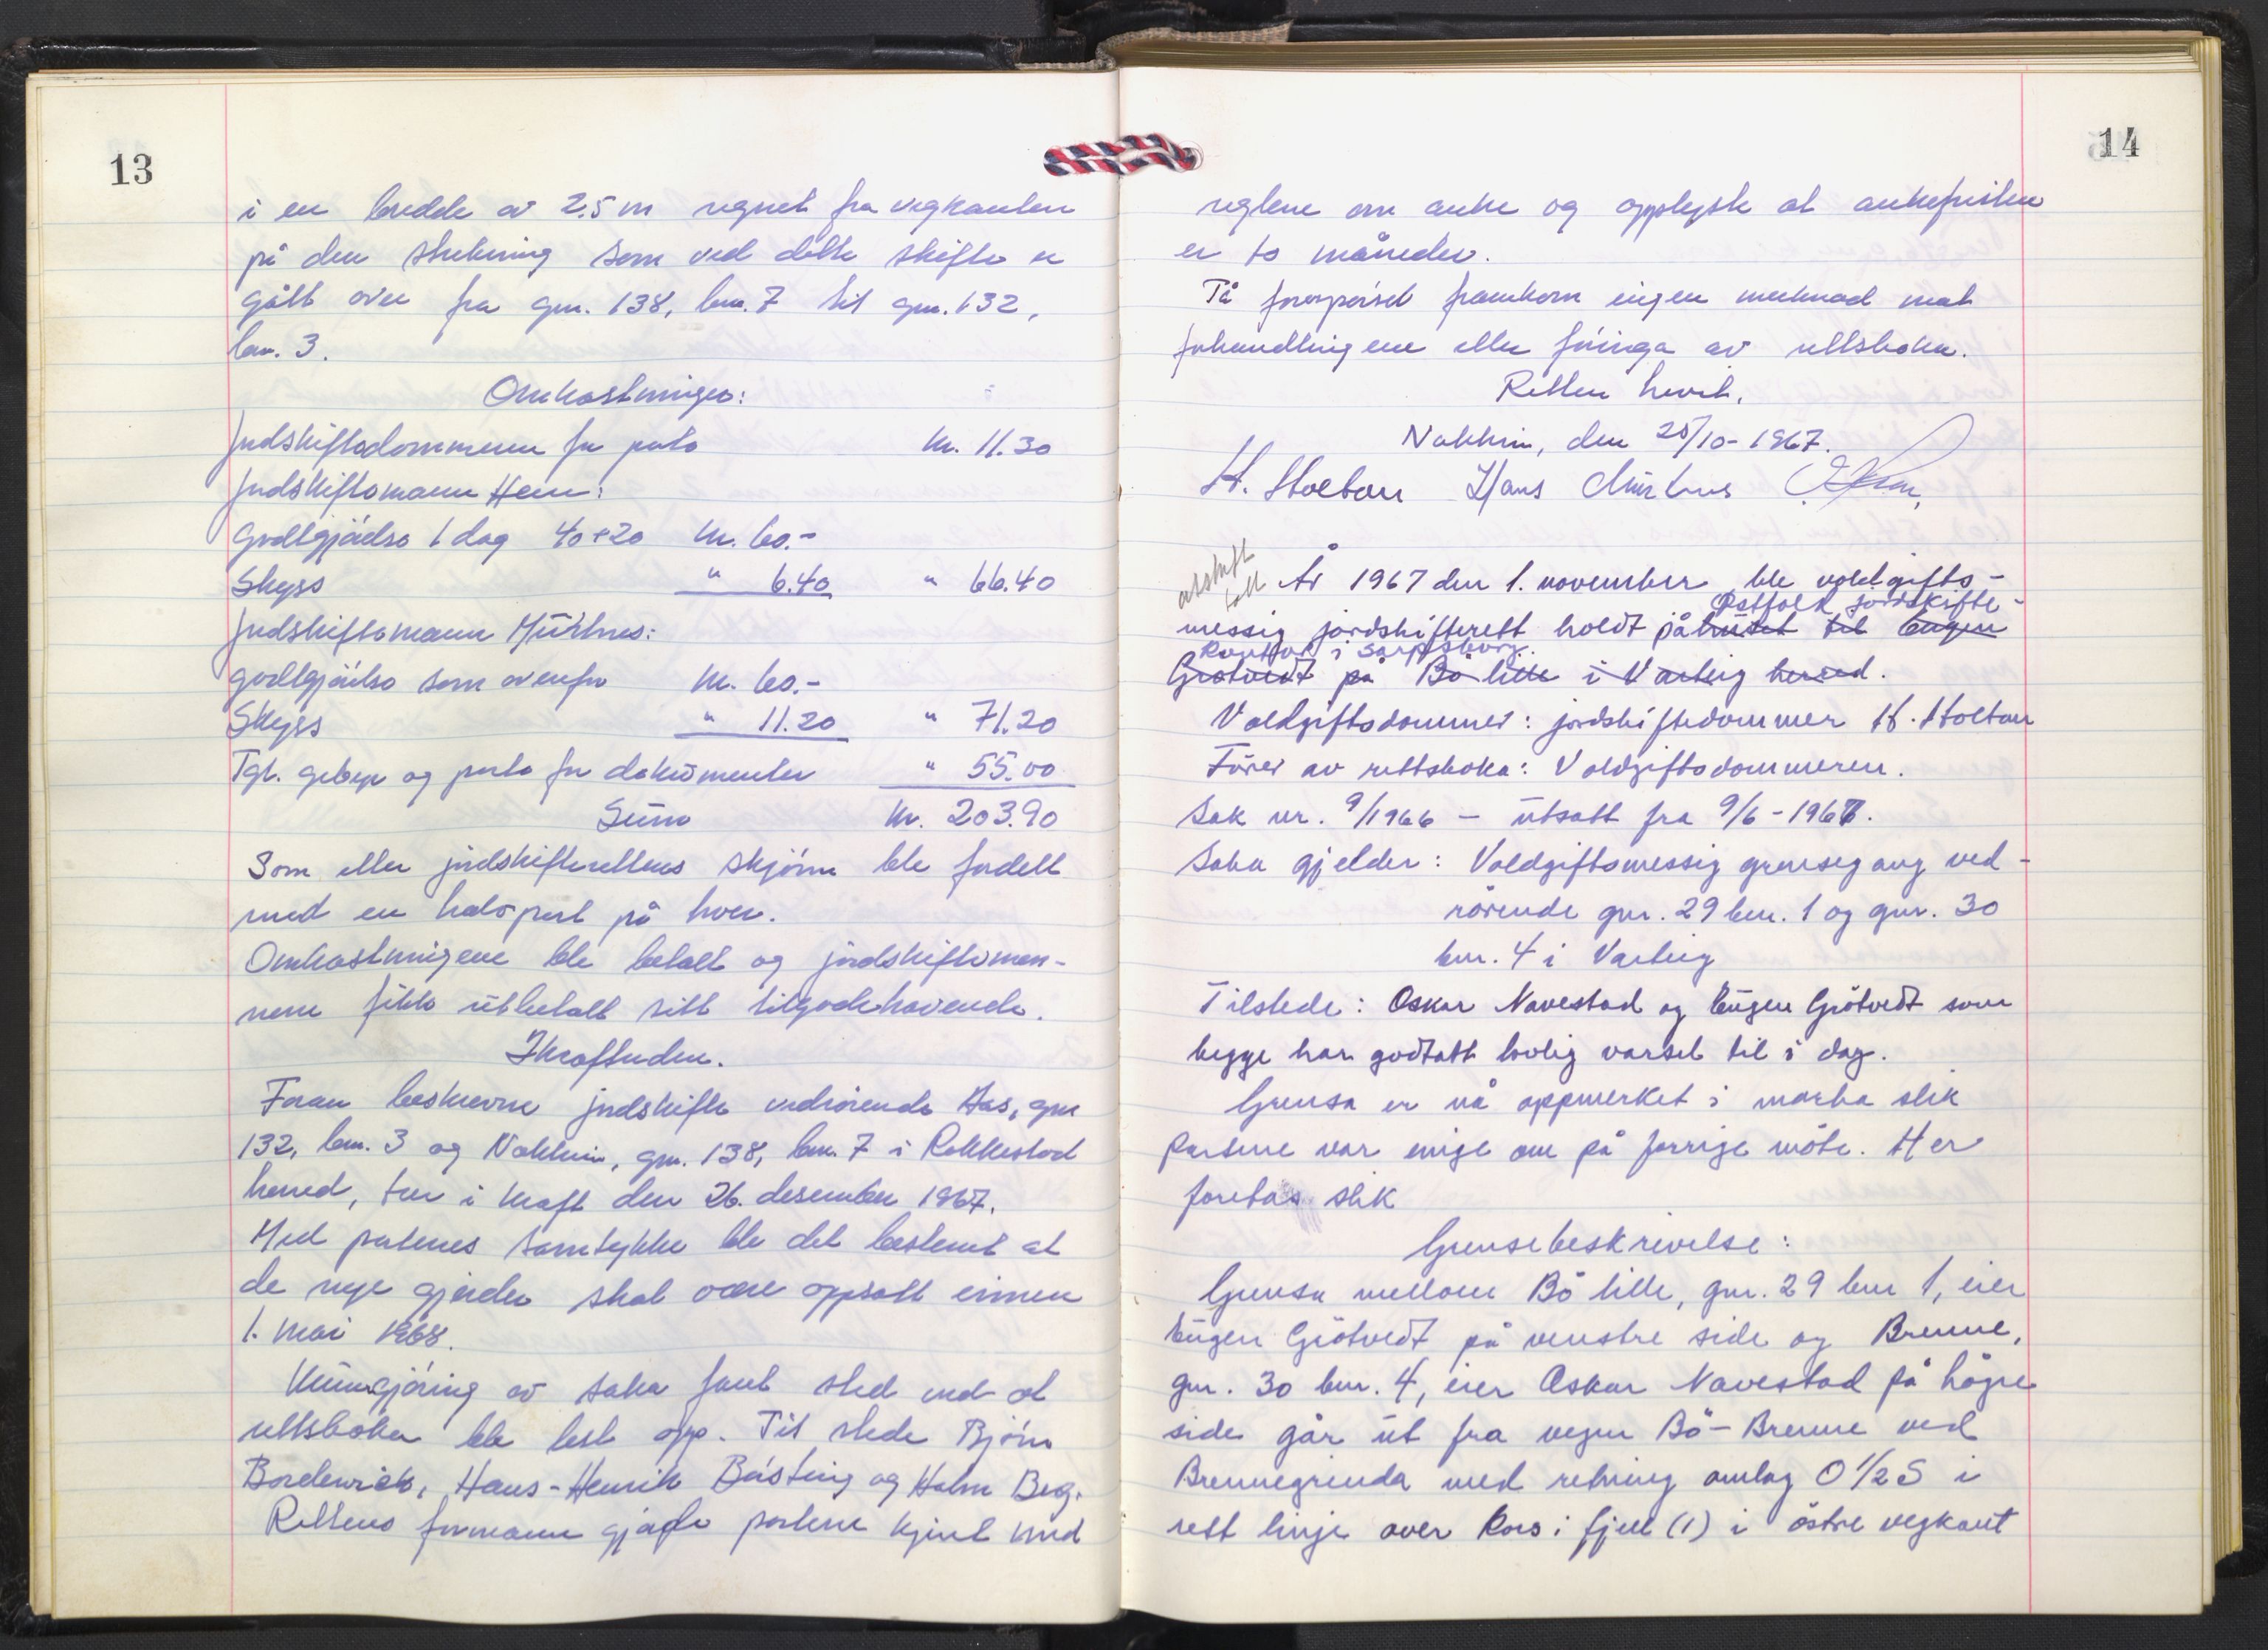 13
i en bredde av 2.5 m regnet fra vegkanten
på den strekning som ved dette skifte er
gått over fra gnr. 138, bnr. 7 til gnr. 132,
bnr. 3.
Omkostninger:
Jordskiftedommeren for porto kr. 11.30
Jordskiftemann Hem:
Godtgjørelse 1 dag 40+20 kr. 60.-
Skyss " 6.40 " 66.40
Jordskiftemann Mürtnes:
godtgjørelse som ovenfor kr. 60.-
Skyss " 11.20 " 71.20
Tgl. gebyr og porto for dokumenter " 55.00
Sum kr. 203.90
Som etter jordskifterettens skjønn ble fordelt
med en halvpart på hver.
Omkostningene ble betalt og jordskiftemen-
nene fikk utbetalt sitt tilgodehavende.
Ikrafttreden.
Foran beskrevne jordskifte vedrørende Has, gnr
132, bnr. 3 og Nakkim, gnr. 138, bnr. 7 i Rakkestad
herred, trer i kraft den 26. desember 1967.
Med partenes samtykke ble det bestemt at
de nye gjerder skal være oppsatt innen
1. mai 1968.
Kunngjøring av saka fant sted ved at
rettsboka ble lest opp. Til stede Bjørn
Bordewick, Hans-Henrik Bústing og Halm Berg.
Rettens formann gjorde partene kjent med
14
reglene om anke og opplyste at ankefristen
er to måneder.
På forespørsel framkom ingen merknad mot
forhandlingene eller føringa av rettsboka.
Retten hevet.
Nakkim, den 25/10-1967.
H. Holtan Hans Mürtnes
avskrift
tatt
År 1967 den 1. november ble voldgifts-
Østfold jordskifte-
messig jordskifterett holdt på huset til Eugen
kontor i Sarpsborg.
Grøtvedt på Bø lille i Varteig herred.
Voldgiftsdommer: jordskiftedommer H. Holtan
Fører av rettsboka: Voldgiftsdommeren.
Sak nr. 9/1966 - utsatt fra 9/6-1967.
Saka gjelder: Voldgiftsmessig grensegang ved-
rørende gnr. 29 bnr. 1 og gnr. 30
bnr. 4 i Varteig
Tilstede: Oskar Navestad og Eugen Grøtvedt som
begge har godtatt lovlig varsel til i dag.
Grensa er nå oppmerket i marka slik
partene var enige om på forrige møte. Her
foretas slik
Grensebeskrivelse:
Grensa mellom Bø lille, gnr. 29 bnr 1, eier
Eugen Grøtvedt på venstre side og Brenne,
gnr. 30 bnr. 4, eier Oskar Navestad på høgre
side går ut fra vegen Bø-Brenne ved
Brennegrinda med retning omlag O 1/2 S i
rett linje over kors i fjell (1) i østre vegkant